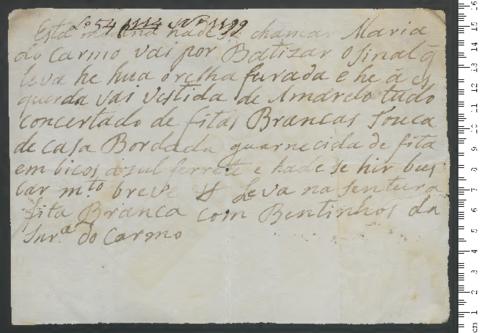 Lº 54 1114 Nº 1199
Esta menina hade se chamar Maria
do Carmo vai por Batizar o sinal q̃
leva he hua orelha furada e he a es
querda vai vistida de Amarelo tudo
concertado de fitas Brancas touca
de casa Bordada guarnecida de fita
em bicos azul ferrete e hade se hir bus
car mto breve leva na senteura
fita Branca com Bentinhos da
Snra do Carmo